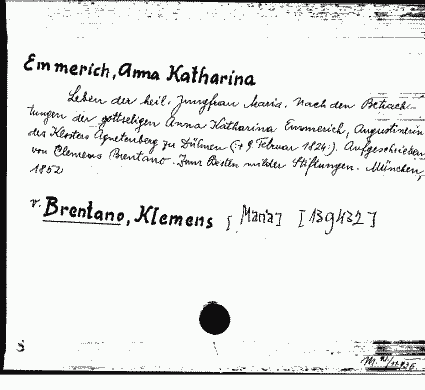 Emmerich, Anna Katharina
Leben der heil. Jungfrau Maria. Nach den Betrach-
tungen der gottseligen Anna Katharina Emmerich, Augustinerin
des Klosters Agnetenberg zu Dülmen (:+ 9. Februar 1824:). Aufgeschrieben
von Clemens Brentano. Zum Besten milder Stiftungen. München,
1852
v. Brentano, Klemens [Maria] [139432]